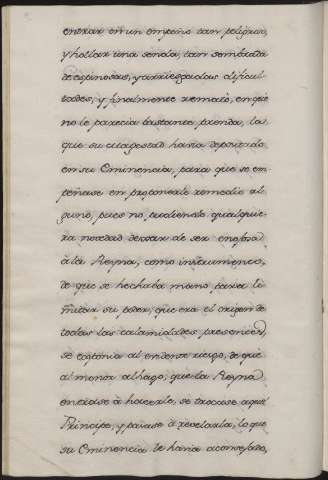 entrar en un empeño tan peligroso,
y hollar una senda, tan sembrada
de espinosas, y arriesgadas dificul
tades; y finalmente remató, en que
no le parecia bastante prenda, la
que su Magestad havia depositado
en su Eminencia, para que se em
peñase en proponerle remedio al
guno, pues no pudiendo qualquie
ra novedad dexar de ser enojosa
à la Reyna, como instrumento,
de que se hechaba mano para li
mitar su poder, que era el origen de
todas las calamidades presentes,
se exponia al evidente riesgo, de que
al menor alhago, que la Reyna
entrase à hacerle, se trocase aquel
Principe, y pasase à revelarla, lo que
su Eminencia le havia aconsejado,